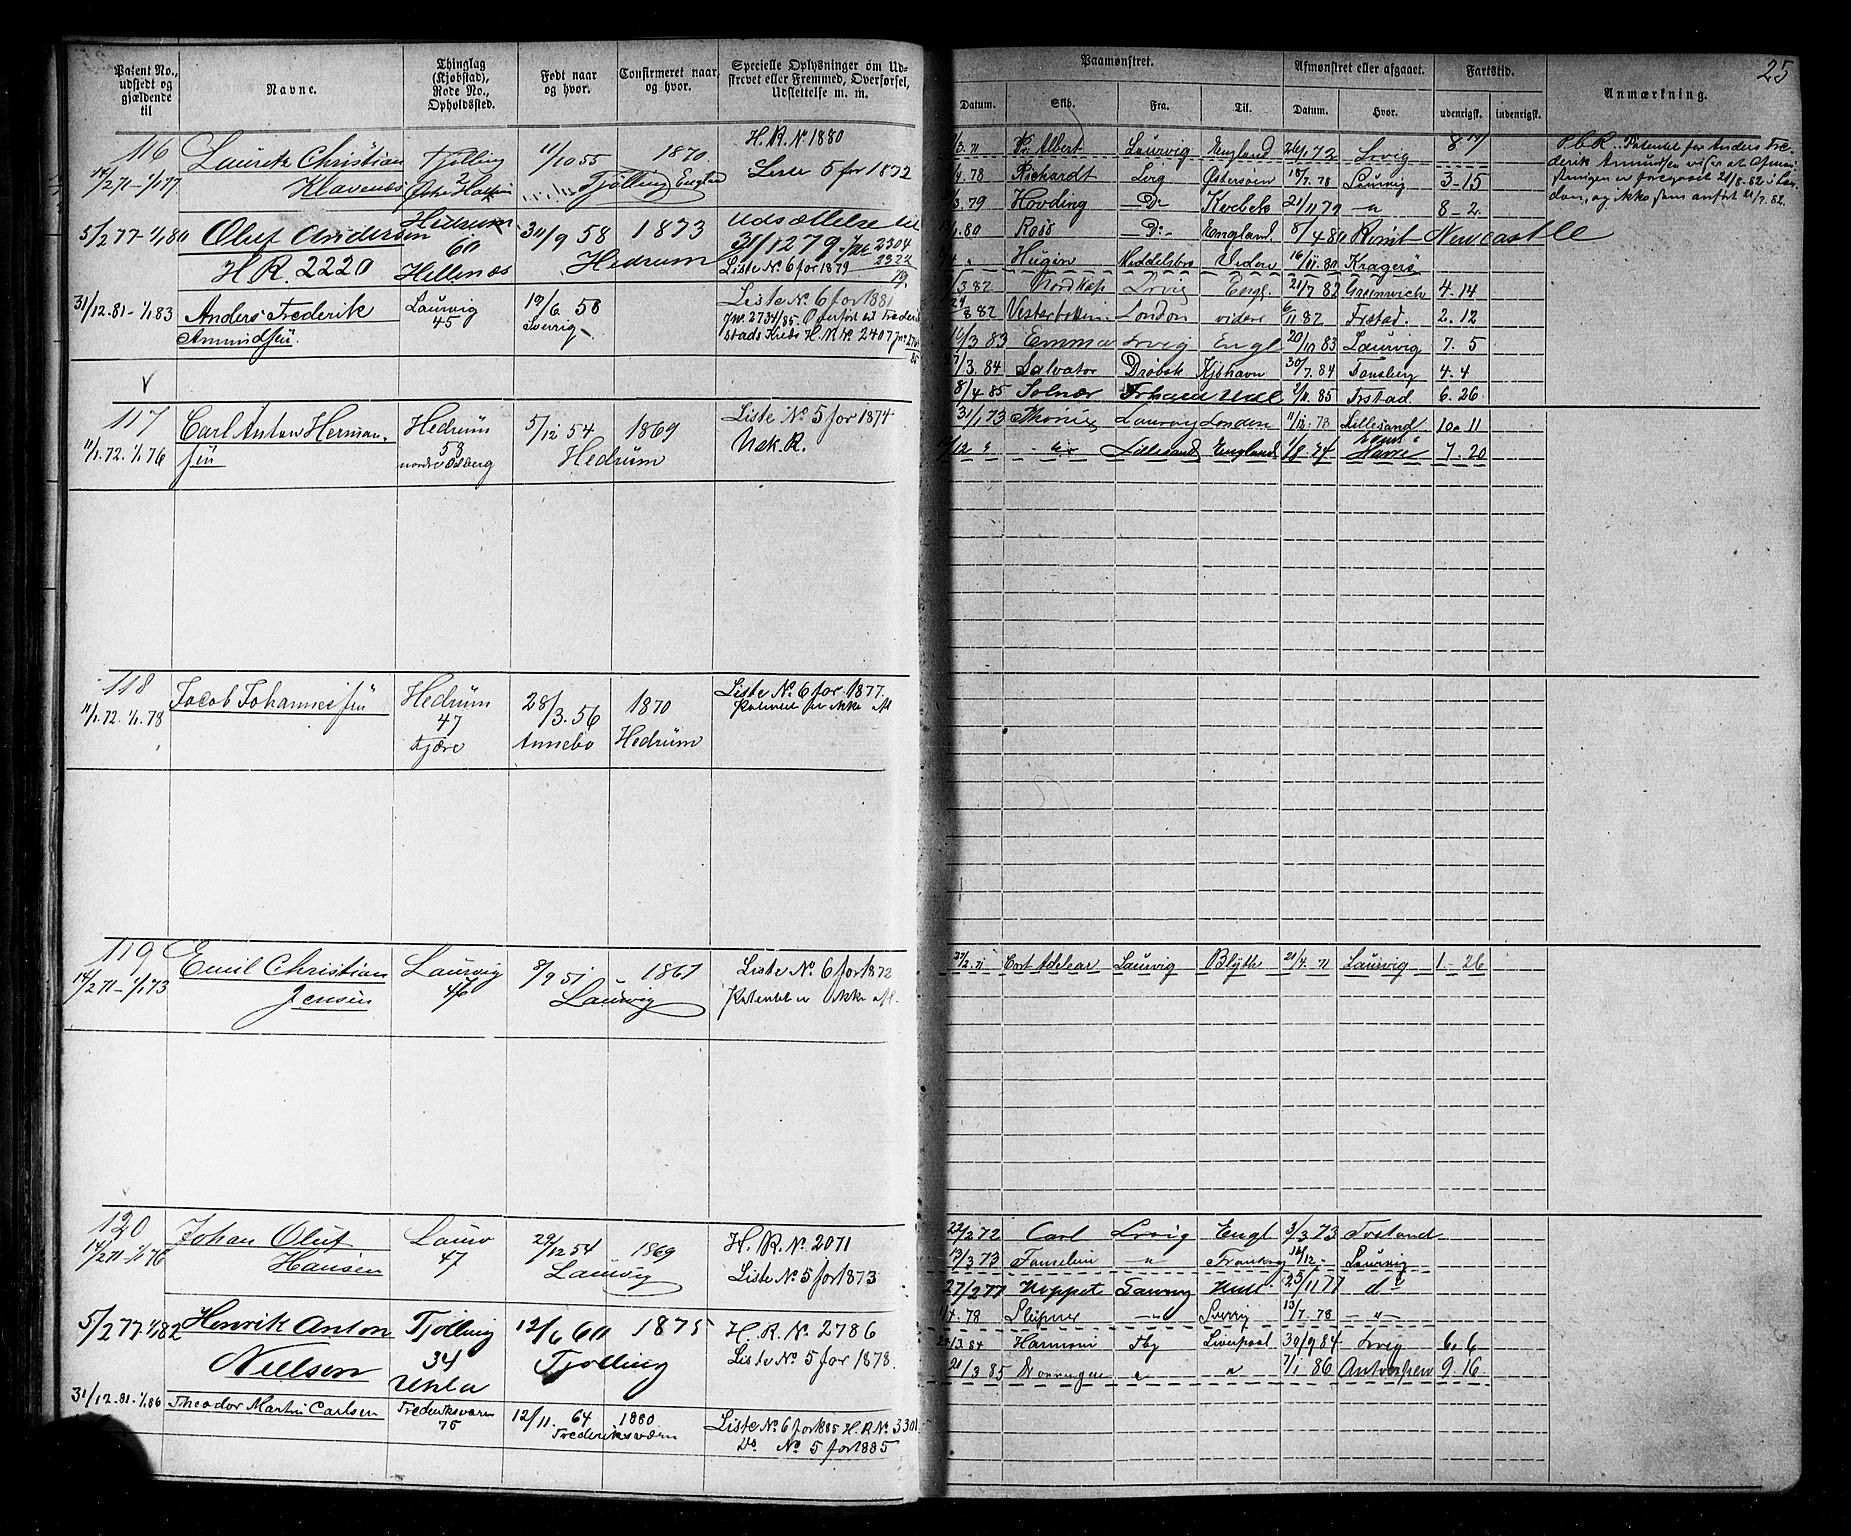 25
Patent No., udstedt og gjældende til
Navne.
Thinglag (Kjøbstad), Rode No., Opholdssted.
Født naar og hvor.
Confirmeret naar og hvor.
Specielle Oplysninger om Udskrevet eller Fremmed, Overførsel, Udslettelse m. m.
Paamønstret.
Datum. Skib. Fra. Til.
Afmønstret eller afgaaet.
Datum. Hvor.
Fartstid.
udenrigsk. indenrigsk.
Anmærkning.
116 Lauritz Christian Tjølling 11/10 55 1870 H. R. No 1880
14/2 71 - 1/1 77 Klavenæs 2 Tjølling Liste 5 for 1872
5/2 77 - 1/1 80 Oluf Anderson Hedrum 60 30/9 58 1873 Udsættelse til 31/12 79
H.R. 2220 Hellenæs Hedrum Liste No 6 for 1879
31/12.81 - 1/1 83 Anders Frederik Laurvig 19/6 58 Liste No 6 for 1881
Amundsen 45 H. No 2407
117 Carl Anton Herman- Hedrum 5/12 54 1869 Liste No 5 for 1874
11/1.72. 1/1 76 sen 58 Hedrum Udsk. R.
118 Jacob Johannessen Hedrum 28/3. 56 1870 Liste No 6 for 1877.
11/1.72. 1/1. 78 47 Annebo Hedrum Patentet er ikke afl
Kjære
119 Emil Christian Laurvig 8/9 51 1867 Liste No 6 for 1872
14/2 71 - 1/1 73 Jensen 46 Laurvig Patentet er ikke afl.
120 Johan Oluf Laurv 29/12 54 1869 H. R. No 2071
14/2 71 - 1/1 76 Hansen 47 Laurvig Liste No 5 for 1873
5/2 77 - 1/1 82 Henrik Anton Tjølling 12/6 60 1875 H. R. No 2786
Nielsen 34 Tjølling Liste No 5 for 1878.
Ukla
31/12.81 - 1/1.86 Theodor Martin Carlsen Frederiksværn 12/11. 64 1880 Liste No 6 for 1885 H. R. No 3301
75 Frederiksværn Do No 5 for 1885
Albert Laurvig England 26/1 72 Lrvig
78 Richardt Lrvg Østersøen 18/7. 78 Laurvig 3-15
79 Høvding Do Kvebek 21/11 79 8-2
80 Ross Do England 8/4 80 Rømt Newcastle
Hugin Middelsbro Videre 16/11. 80 Kragerø
3 82 Nordkap Lrvig Engl. 21/7 82 Greenwich 4.14
29/8 82 Vesterbotten London videre 6/11 82 Frstad. 2.12
16/3 83 Emma Lrvig Engl 20/10 83 Laurvig 7.5
3. 84 Salvator Drøbak Kjøbhavn 30/7. 84 Tønsberg 4.4
8/4. 85 Solnær 85 Frstad. 6.26
P. C. R. Patentet for Anders Frederik Amundsen viser at Afmønstringen er foregaaet 21/8.82 i London, og ikke som anført 21/7.82.
31/1 73 Laurvig London 78 Lillesand 10.11
12 Lillesand England 1/8 74 Havre 7.20
27/2.71 Cort Adelear Laurvig Blyth 21/4.71 Laurvig 1-26
22/2 72 Carl Lrvig Engl 3/3 73
13/3 73 " 16/12 Laurvig
27/2 77 Haabet Laurvig Hull 23/11 77 do
4. 78 13/7. 78 - " -
3.84 Harmoni Tbg Liverpool 30/9 84 Lrvig 6.6
21/3 85 " " 7/1 86 Antverpen 9.16